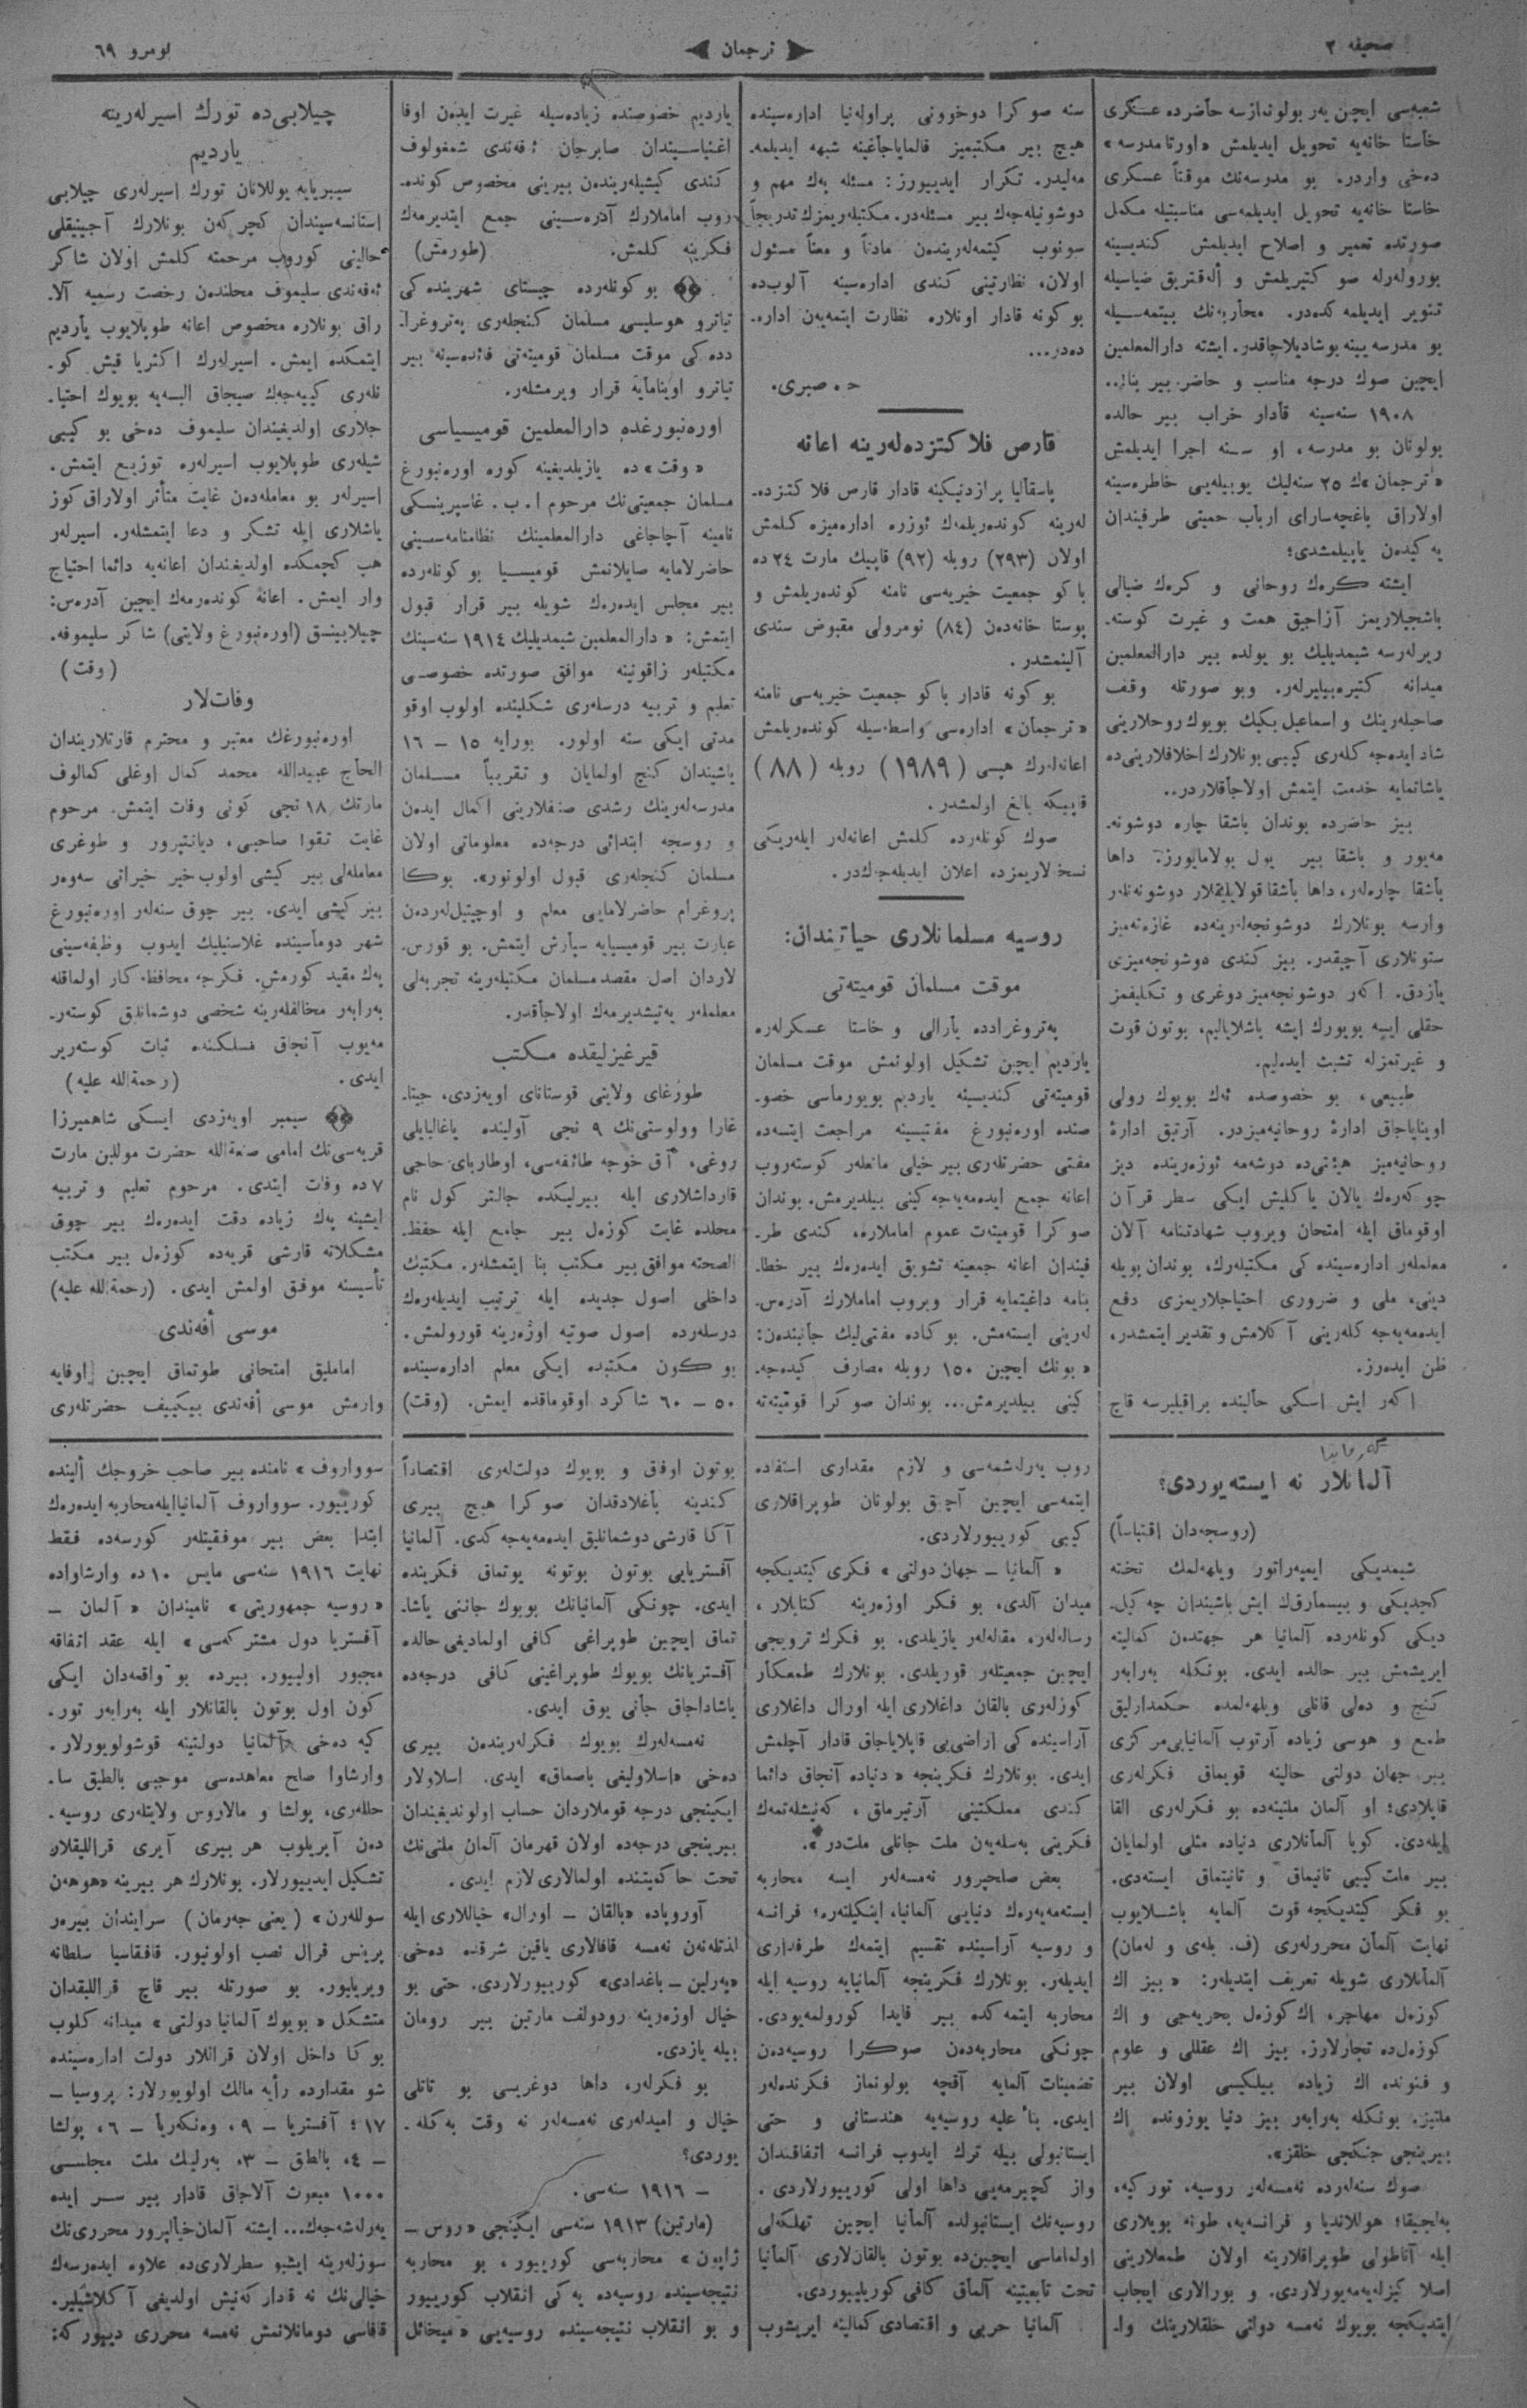 صحيفه ٢
ترجمان
نومرو ٦٩
شعبه‌سی ايچين ير بولونمازسه حاضرده عسكری
خاستا خانه‌يه تحويل ايديلمش «اورتا مدرسه»
ده‌خی واردر. بو مدرسه‌نك موقتاً عسكری
خاستا خانه‌يه تحويل ايديلمه‌سی مناسبتيله مكمل
صورتده تعمير و اصلاح ايديلمش كنديسينه
بورولرله صو كتيريلمش و أله‌قتريق ضياسيله
تنوير ايديلمه‌كده‌در. محاربه‌نك بيتمه‌سيله
بو مدرسه يينه بوشاديلاجاقدر. ايشته دارالمعلمين
ايچين صوك درجه مناسب و حاضر بير بنا!..
١٩٠٨ سنه‌سينه قادار خراب بير حالده
بولونان بو مدرسه، او سنه اجرا ايديلمش
«ترجمان»ك ٢٥ سنه‌ليك يوبيله‌يی خاطره‌سينه
اولاراق باغچه‌سارای ارباب حميتی طرفيندان
يه‌كيدن ياپيلمشدی؛
ايشته كره‌ك روحانی و كره‌ك ضيالی
باشچيلاريمز آزاجيق همت و غيرت كوسته‌-
ريرلرسه شيمديليك بو يولده بير دارالمعلمين
ميدانه كتيره‌بيليرلر. وبو صورتله وقف
صاحبلرينك و اسماعيل بكيك بويوك روحلارينی
شاد ايده‌جه‌كلری كيبی بونلارك اخلافلارينی‌ده
ياشاتمايه خدمت ايتمش اولاجاقلاردر..
بيز حاضرده بوندان باشقا چاره دوشونه‌-
مه‌يور و باشقا بير يول بولامايورز. داها
باشقا چاره‌لر، داها باشقا قولايليقلار دوشونه‌نلر
وارسه بونلارك دوشونجه‌لرينه‌ده غازه‌ته‌ميز
ستونلاری آچيقدر. بيز كندی دوشونجه‌ميزی
يازدق. اكر دوشونجه‌ميز دوغری و تكليفمز
حقلی ايسه بويورك ايشه باشلايالم، بوتون قوت
و غيرتمزله تشبث ايده‌ليم.
طبيعی، بو خصوصده ئه‌ك بويوك رولی
اوينايا‌جاق ادارۀ روحانيه‌ميزدر. آرتيق ادارۀ
روحانيه‌ميز هيئتی‌ده دوشه‌مه ئوزه‌رينده ديز
چوكه‌رك يالان ياكليش ايكی سطر قرآن
اوقوماق ايله امتحان ويروب شهادتنامه آلان
معلملر اداره‌سينده كی مكتبلرك، بوندان بويله
دينی، ملی و ضروری احتياجلاريمزی دفع
ايده‌مه‌يه‌جه‌كلرينی آكلامش و تقدير ايتمشدر،
ظن ايده‌رز.
اكر ايش اسكی حالينده براقيليرسه قاچ
سنه صوكرا دوخوونی پراوله‌نيا اداره‌سينده
هيچ بير مكتبميز قالماياجاغينه شبهه ايديلمه‌-
مه‌ليدر. تكرار ايدييورز: مسئله يه‌ك مهم و
دوشونيله‌جه‌ك بير مسئله‌در. مكتبلريمزك تدريجاً
سونوب كيتمه‌لريندن مادتاً و معناً مسئول
اولان، نظارتينی كندی اداره‌سينه آلوب‌ده
بو كونه قادار اونلاره نظارت ايتمه‌يه‌ن اداره‌-
ده‌در...
ح. صبری.
قارص فلاكتزده‌لرينه اعانه
پاسقاليا پرازدنيكينه قادار قارص فلاكتزده‌-
لرينه كوندريلمك ئوزره اداره‌ميزه كلمش
اولان (٢٩٣) روبله (٩٢) قاپيك مارت ٢٤ ده
باكو جمعيت خيريه‌سی نامنه كوندريلمش و
پوستا خانه‌دن (٨٤) نومرولی مقبوض سندی
آلينمشدر.
بو كونه قادار باكو جمعيت خيريه‌سی نامنه
«ترجمان» اداره‌سی واسطه‌سيله كوندريلمش
اعانه‌لرك هپسی (١٩٨٩) روبله (٨٨)
قاپيكه بالغ اولمشدر.
صوك كونلرده كلمش اعانه‌لر ايله‌ريكی
نسخه‌لاريمزده اعلان ايديله‌جه‌ك‌در.
روسيه مسلمانلاری حياتيندان:
موقت مسلمان قوميته‌تی
پتروغرادده يارالی و خاستا عسكرلره
يارديم ايچين تشكيل اولونمش موقت مسلمان
قوميته‌تی كنديسينه يارديم بويورماسی خصو-
صنده اوره‌نبورغ مفتيسينه مراجعت ايتسه‌ده
مفتی حضرتلری بير خيلی مانعلر كوستروب
اعانه جمع ايده‌مه‌يه‌جه‌كينی بيلديرمش. بوندان
صوكرا قوميته‌ت عموم اماملاره، كندی طر-
فيندان اعانه جمعينه تشويق ايدرك بير خطا-
بنامه داغيتمايه قرار ويروب اماملارك آدرس-
لرينی ايسته‌مش. بوكاده مفتی‌ليك جانبندن:
«بونك ايچين ١٥٠ روبله مصارف كيده‌جه‌-
كينی بيلديرمش... بوندان صوكرا قوميته‌ته
يارديم خصوصنده زياده‌سيله غيرت ايدن اوفا
اغنياسيندان صابرجان ئه‌فندی شمغولوف
كندی كيشيلريندن بيرينی مخصوص كونده‌-
روب اماملارك آدره‌سينی جمع ايتديرمك
فكرينه كلمش. (طورمش)
بو كونلرده چيستای شهرينده كی
تياترو هوسليسی مسلمان كنجلری په‌تروغرا-
دده كی موقت مسلمان قوميته‌تی فائده‌سينه بير
تياترو اويناماييه قرار ويرمشلر.
اوره‌نبورغده دارالمعلمين قوميسياسی
«وقت» ده يازيلديغينه كوره اوره‌نبورغ
مسلمان جمعيتی‌نك مرحوم ا. ب. غاسپرينسكی
نامينه آچاجاغی دارالمعلمينك نظامنامه‌سينی
حاضرلامايه صايلانمش قوميسيا بو كونلرده
بير مجلس ايدرك شويله بير قرار قبول
ايتمش: «دارالمعلمين شيمديليك ١٩١٤ سنه‌سينك
مكتبلر زاقونينه موافق صورتده خصوصی
تعليم و تربيه درسلری شكلينده اولوب اوقو
مدتی ايكی سنه اولور. بورايه ١٥ - ١٦
ياشيندان كنج اولمايان و تقريباً مسلمان
مدرسه‌لرينك رشدی صنفلارينی اكمال ايدن
و روسجه ابتدائی درجه‌ده معلوماتی اولان
مسلمان كنجلری قبول اولونور». بوكا
پروغرام حاضرلامايی معلم و اوچيتيل‌لردن
عبارت بير قوميسيايه سپارش ايتمش. بو قورس-
لاردان اصل مقصد مسلمان مكتبلرينه تجربه‌لی
معلملر يه‌تيشديرمك اولاجاقدر.
قيرغيزليقده مكتب
طورغای ولايتی قوستانای اويه‌زدی، جيتا-
غارا وولوستی‌نك ٩ نجی آولينده ياغالبايلی
روغی، آق خوجه طائفه‌سی، اوطاربای حاجی
قارداشلاری ايله بيرليكده جالتر كول نام
محلده غايت كوزل بير جامع ايله حفظ-
الصحته موافق بير مكتب بنا ايتمشلر. مكتبك
داخلی اصول جديده ايله ترتيب ايديلرك
درسلرده اصول صوتيه اوزرينه قورولمش.
بو كون مكتبده ايكی معلم اداره‌سينده
٥٠ - ٦٠ شاكرد اوقوماقده ايمش. (وقت)
چيلابی‌ده تورك اسيرلرينه
يارديم
سيبريايه يوللانان تورك اسيرلری چيلابی
استانسه‌سيندان كچركن بونلارك آجينيقلی
حالينی كوروب مرحمته كلمش اولان شاكر
ئه‌فندی سليموف محلندن رخصت رسميه آلا-
راق بونلاره مخصوص اعانه طوپلايوب يارديم
ايتمكده ايمش. اسيرلرك اكثريا قيش كو-
نلری كييه‌جك صيجاق البسه‌يه بويوك احتيا-
جلاری اولديغيندان سليموف ده‌خی بو كيبی
شيلری طوپلايوب اسيرلره توزيع ايتمش.
اسيرلر بو معامله‌دن غايت متأثر اولاراق كوز
ياشلاری ايله تشكر و دعا ايتمشلر. اسيرلر
هپ كچمكده اولديغندان اعانه‌يه دائما احتياج
وار ايمش. اعانه كوندرمك ايچين آدرس:
چيلابينسق (اوره‌نبورغ ولايتی) شاكر سليموفه.
(وقت)
وفات‌لار
اوره‌نبورغك معتبر و محترم قارتلاريندان
الحاج عبيدالله محمد كمال اوغلی كمالوف
مارتك ١٨ نجی كونی وفات ايتمش. مرحوم
غايت تقوا صاحبی، ديانتپرور و طوغری
معامله‌لی بير كيشی اولوب خير خيراتی سه‌وه‌ر
بير كيشی ايدی. بير چوق سنه‌لر اوره‌نبورغ
شهر دوماسينده غلاسنيليك ايدوب وظيفه‌سينی
يه‌ك مفيد كورمش. فكرجه محافظه‌كار اولماقله
برابر مخالفلرينه شخصی دوشمانلق كوستر-
مه‌يوب آنجاق مسلكنده ثبات كوسترير
ايدی. (رحمةالله عليه)
سيمبر اويه‌زدی ايسكی شاهميرزا
قريه‌سی‌نك امامی صنعةالله حضرت مولدين مارت
٧ ده وفات ايتدی. مرحوم تعليم و تربيه
ايشينه يه‌ك زياده دقت ايدرك بير چوق
مشكلاته قارشی قريه‌ده كوزل بير مكتب
تأسيسنه موفق اولمش ايدی. (رحمةالله عليه)
موسی أفندی
اماملیق امتحانی طوتماق ايچين اوفايه
وارمش موسی أفندی بيكييف حضرتلری
آلمانلار نه ايسته‌يوردی؟
(روسجه‌دان اقتباساً)
شيمديكی ايمپه‌راتور ويلهه‌لمك تخته
كچديكی و بيسمارقك ايش باشيندان چه‌كيل-
ديكی كونلرده آلمانيا هر جهتدن كمالينه
ايريشمش بير حالده ايدی. بونكله برابر
كنج و ده‌لی قانلی ويلهه‌لمده حكمدارليق
طمع و هوسی زياده آرتوب آلمانيايی مركزی
بير جهان دولتی حالينه قويماق فكرلری
قاپلادی؛ او آلمان ملتينه‌ده بو فكرلری القا
ايله‌دی. كويا آلمانلاری دنياده مثلی اولمايان
بير ملت كيبی تانيماق و تانيتماق ايسته‌دی.
بو فكر كيتديكجه قوت آلمايه باشلايوب
نهايت آلمان محررلری (ف. بله‌ی و له‌مان)
آلمانلاری شويله تعريف ايتديلر: «بيز اك
كوزل مهاجر، اك كوزل بحريه‌جی و اك
كوزل‌ده تجارلارز. بيز اك عقللی و علوم
و فنونده اك زياده بيلكيسی اولان بير
ملتيز. بونكله برابر بيز دنيا يوزونده اك
بيرينجی جنكجی خلقز».
صوك سنه‌لرده نه‌مسه‌لر روسيه، توركيه،
به‌لجيقا؛ هوللانديا و فرانسه‌يه، طونه بويلاری
ايله آناطولی طوپراقلارينه اولان طمعلارينی
اصلا كيزله‌يه‌مه‌يورلاردی. و بورالاری ايجاب
ايتديكجه بويوك نه‌مسه دولتی خلقلارينك وا-
روب يرله‌شمه‌سی و لازم مقداری استفاده
ايتمه‌سی ايچين آچيق بولونان طوپراقلاری
كيبی كورييورلاردی.
«آلمانيا - جهان دولتی» فكری كيتديكجه
ميدان آلدی، بو فكر اوزرينه كتابلار،
رساله‌لر، مقاله‌لر يازيلدی. بو فكرك ترويجی
ايچين جمعيتلر قوريلدی. بونلارك طمعكار
كوزلری بالقان داغلاری ايله اورال داغلاری
آراسينده كی اراضی‌يی قاپلاياجاق قادار آچلمش
ايدی. بونلارك فكرينجه «دنياده آنجاق دائما
كندی مملكتينی آرتيرماق، كه‌نيشله‌تمه‌ك
فكرينی به‌سله‌يه‌ن ملت جانلی ملت‌در».
بعض صلحپرور نه‌مسه‌لر ايسه محاربه
ايسته‌مه‌يه‌رك دنيايی آلمانيا، اينكيلتره؛ فرانسه
و روسيه آراسينده تقسيم ايتمك طرفداری
ايديلر. بونلارك فكرينجه آلمانيايه روسيه ايله
محاربه ايتمه‌كده بير فايدا كورولمه‌يودی.
چونكی محاربه‌دن صوكرا روسيه‌دن
تضمينات آلمايه آقچه بولونماز فكرنده‌لر
ايدی. بناءً عليه روسيه‌يه هندستانی و حتی
ايستانبولی بيله ترك ايدوب فرانسه اتفاقندان
واز كچيرمه‌يی داها اولی كورييورلاردی.
روسيه‌نك ايستانبولده آلمانيا ايچين تهلكه‌لی
اولماماسی ايچين‌ده بوتون بالقان‌لاری آلمانيا
تحت تابعيتينه آلماق كافی كوريلييوردی.
آلمانيا حربی و اقتصادی كمالينه ايريشوب
بوتون اوفاق و بويوك دولتلری اقتصاداً
كندينه باغلادقدان صوكرا هيچ بيری
آكا قارشی دوشمانليق ايده‌مه‌يه‌جه‌كدی. آلمانيا
آفستريايی بوتون بوتونه يوتماق فكرينده
ايدی. چونكی آلمانيانك بويوك جاننی ياشا-
تماق ايچين طوپراغی كافی اولماديغی حالده
آفستريانك بويوك طوپراغينی كافی درجه‌ده
ياشاداجاق جانی يوق ايدی.
نه‌مسه‌لرك بويوك فكرلريندن بيری
ده‌خی «اسلاوليغی باصماق» ايدی. اسلاولار
ايكينجی درجه قوملاردان حساب اولونديغندان
بيرينجی درجه‌ده اولان قهرمان آلمان ملتی‌نك
تحت حاكميتنده اولمالاری لازم ايدی.
آوروپاده «بالقان - اورال» خياللاری ايله
لذتله‌نه‌ن نه‌مسه قافالاری ياقين شرقده ده‌خی
«به‌رلين - باغدادی» كورييورلاردی. حتی بو
خيال اوزرينه رودولف مارتين بير رومان
بيله يازدی.
بو فكرلر، داها دوغريسی بو تاتلی
خيال و اميدلری نه‌مسه‌لر نه وقت به‌كله-
يوردی؟
- ١٩١٦ سنه‌سی.
(مارتين) ١٩١٣ سنه‌سی ايكينجی «روس -
ژاپون» محاربه‌سی كورييور، بو محاربه
نتيجه‌سينده روسيه‌ده يه‌كی انقلاب كورييور
و بو انقلاب نتيجه‌سينده روسيه‌يی «ميخائل
سوواروف» نامنده بير صاحب خروجك ألينده
كورييور. سوواروف آلمانيا ايله محاربه ايدرك
ابتدا بعض بير موفقيتلر كورسه‌ده فقط
نهايت ١٩١٦ سنه‌سی مايس ١٠ ده وارشاواده
«روسيه جمهوريتی» ناميندان «آلمان -
آفستريا دول مشتركه‌سی» ايله عقد اتفاقه
مجبور اولييور. بيرده بو واقعه‌دان ايكی
كون اول بوتون بالقانلار ايله برابر تور-
كيه ده‌خی آلمانيا دولتينه قوشولويورلار.
وارشاوا صلح معاهده‌سی موجبی بالطيق سا-
حللری، پولشا و مالاروس ولايتلری روسيه-
دن آيريلوب هر بيری آيری قراللیقلار
تشكيل ايدييورلار. بونلارك هر بيرينه «هوهه‌ن
سوللرن» (يعنی جه‌رمان) سرايندان بيرر
پرينس قرال نصب اولونيور. قافقاسيا سلطانه
ويريليور. بو صورتله بير قاچ قراللیقدان
متشكل «بويوك آلمانيا دولتی» ميدانه كلوب
بوكا داخل اولان قراللار دولت اداره‌سينده
شو مقدارده رأيه مالك اولويورلار: پروسيا -
١٧؛ آفستريا - ٩، وه‌نكه‌ريا - ٦، پولشا
- ٤، بالطق - ٣، به‌رليك ملت مجلسی
١٠٠٠ مبعوث آلاجاق قادار بير سر ايده
يرله‌شه‌جك... ايشته آلمان خيالپرور محرری‌نك
سوزلرينه ايشبو سطرلاری‌ده علاوه ايدرسه‌ك
خيالی‌نك نه قادار كه‌نيش اولديغی آكلاشيلير.
قافاسی دومانلانمش نه‌مسه محرری دييور كه: